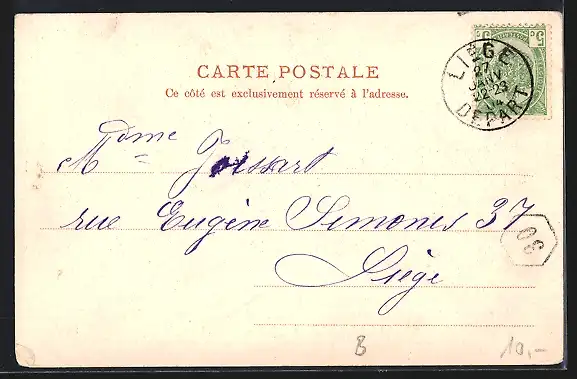 CARTE POSTALE
Ce côté est exclusivement réservé à l'adresse.
LIÉGE
27
JANV
22-23
DÉPART
5 5
Mdme Jossart
rue Eugène Simonis 37
Liège
06
B 10,-